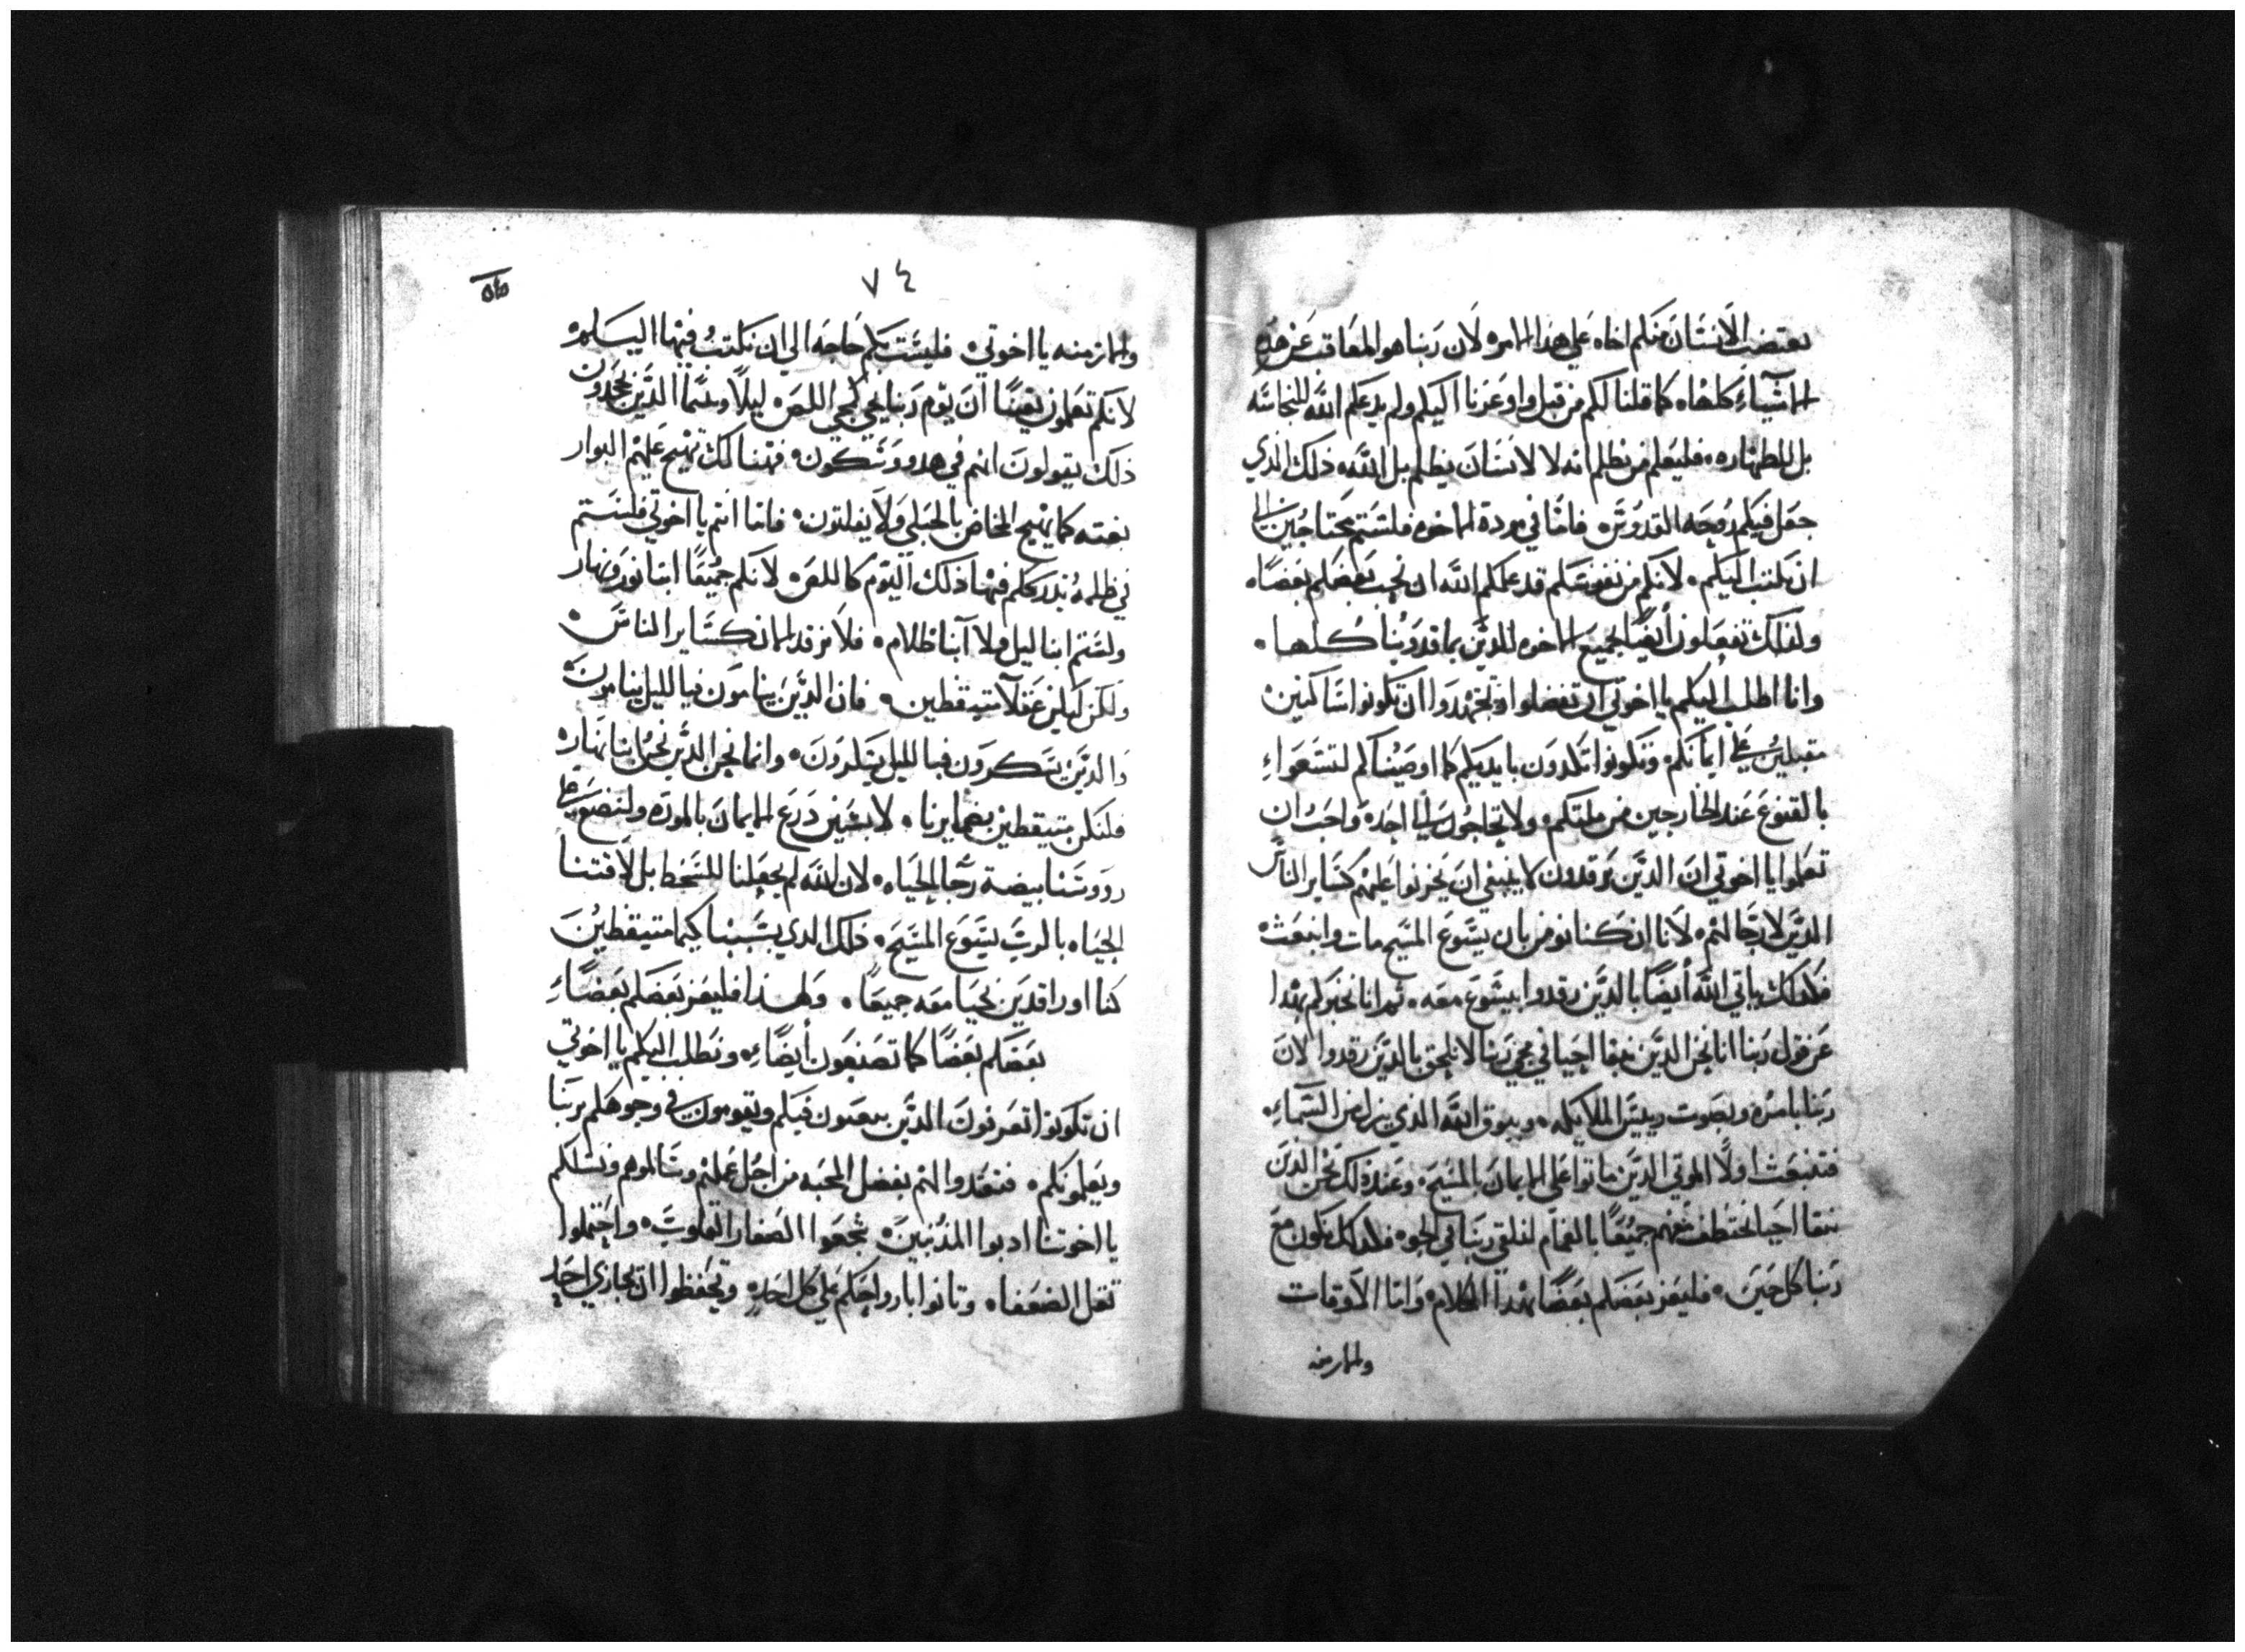 يغتصب الانسان منكم اخاه علي هذا الامره لان ربنا هو المعاقب عن هذه
الاشياء كلها ه كما قلنا لكم من قبل واوعزنا اليكم ولم يدعكم الله للنجاسه
بل للطهاره ه فليعلم من يظلم انه لا لانسان يظلم بل الله ه ذلك الذي
جعل فيكم روحه القدوس ه فاما في مودة الاخوه فلستم محتاجين الي
ان نكتب اليكم ه لانكم من نفوسكم قد علمكم الله ان يحب بعضكم بعضا ه
ولذلك تفعلون أيضًا بجميع الاخوه الذين بماقدونيا كلها ه
وانا اطلب اليكم يا اخوتي ان تفضلوا وتجتهدوا ان تكونوا ساكنين ه
مقبلين علي ايمانكم ه وتكونوا تكدون بايديكم كما اوصيناكم لتسعواء
بالقنوع عند الخارجين من ملتكم ه ولا تحتاجون الي احد ه واحب ان
تعلموا يا اخوتي ان الذين يرقدون لا ينبغي ان تحزنوا عليهم كساير الناس
الذين لا رجا لهم ه لانا ان كنا نومن بان يسوع المسيح مات وانبعث ه
فكذلك ياتي الله أيضًا بالذين رقدوا بيسوع معه ه ثم انا نخبركم بهذا
عن قول ربنا انا نحن الذين نبقا احيا في مجي ربنا لا نلحق بالذين رقدوا لان
ربنا بامره وبصوت رييس الملايكه ه وببوق الله الذي ينزل من السماء ه
فتنبعث اولا الموتي الذين ماتوا علي الايمان بالمسيح ه وعند ذلك نحن الذين
نبقا احيا نختطف معهم جميعًا بالغمام لنلقي ربنا في الجو ه فكذلك نكون مع
ربنا كل حين ه فليعز بعضكم بعضًا بهذا الكلام ه واما الاوقات
والازمنه
٧٤
والازمنه يا اخوتي ه فليست بكم حاجه الي ان نكتب فيها اليكم ه
لانكم تعلمون يقينًا ان يوم ربنا يجي كمجي اللص ه ليلًا وبينما الذين يجحدون
ذلك يقولون انهم في هدو وسكون ه فهنالك يهيج عليهم البوار
بغته كما يهيج المخاض بالحبلي ولا يفلتون ه فاما انتم يا اخوتي فلستم
في ظلمه يدرككم فيها ذلك اليوم كاللص ه لانكم جميعًا ابنا نور ونهار
ولستم ابنا ليل ولا ابنا ظلام ه فلا نرقد الان كساير الناس ه
ولكن لنكن عقلا متيقظين ه فان الذين ينامون فبالليل ينامون
والذين يسكرون فبالليل يسكرون ه وانما نحن الذين نحن ابنا نهار ه
فلنكن متيقظين بضمايرنا ه لابسين درع الايمان بالموده ولنضع علي
رووسنا بيضة رجا الحياه ه لان الله لم يجعلنا للسخط بل لاقتنا
الحياه بالرب يسوع المسيح ه ذلك الذي بسببنا كيما متيقظين
كنا او راقدين نحيا معه جميعًا ه ولهذا فليعز بعضكم بعضًاء
بعضكم بعضًا كما تصنعون أيضًاء ه ونطلب اليكم يا اخوتي
ان تكونوا تعرفون الذين يتعبون فيكم ويقومون في وجوهكم بربنا
ويعلمونكم ه فتعدوا لهم بفضل المحبه من اجل عملهم وسالموهم ونسلكم
يا اخوتنا ادبوا المذنبين ه شجعوا الصغار القلوب ه واحتملوا
ثقل الضعفا ه وتانوا بارواحكم علي كل احد ه وتحفظوا ان يجازي احد